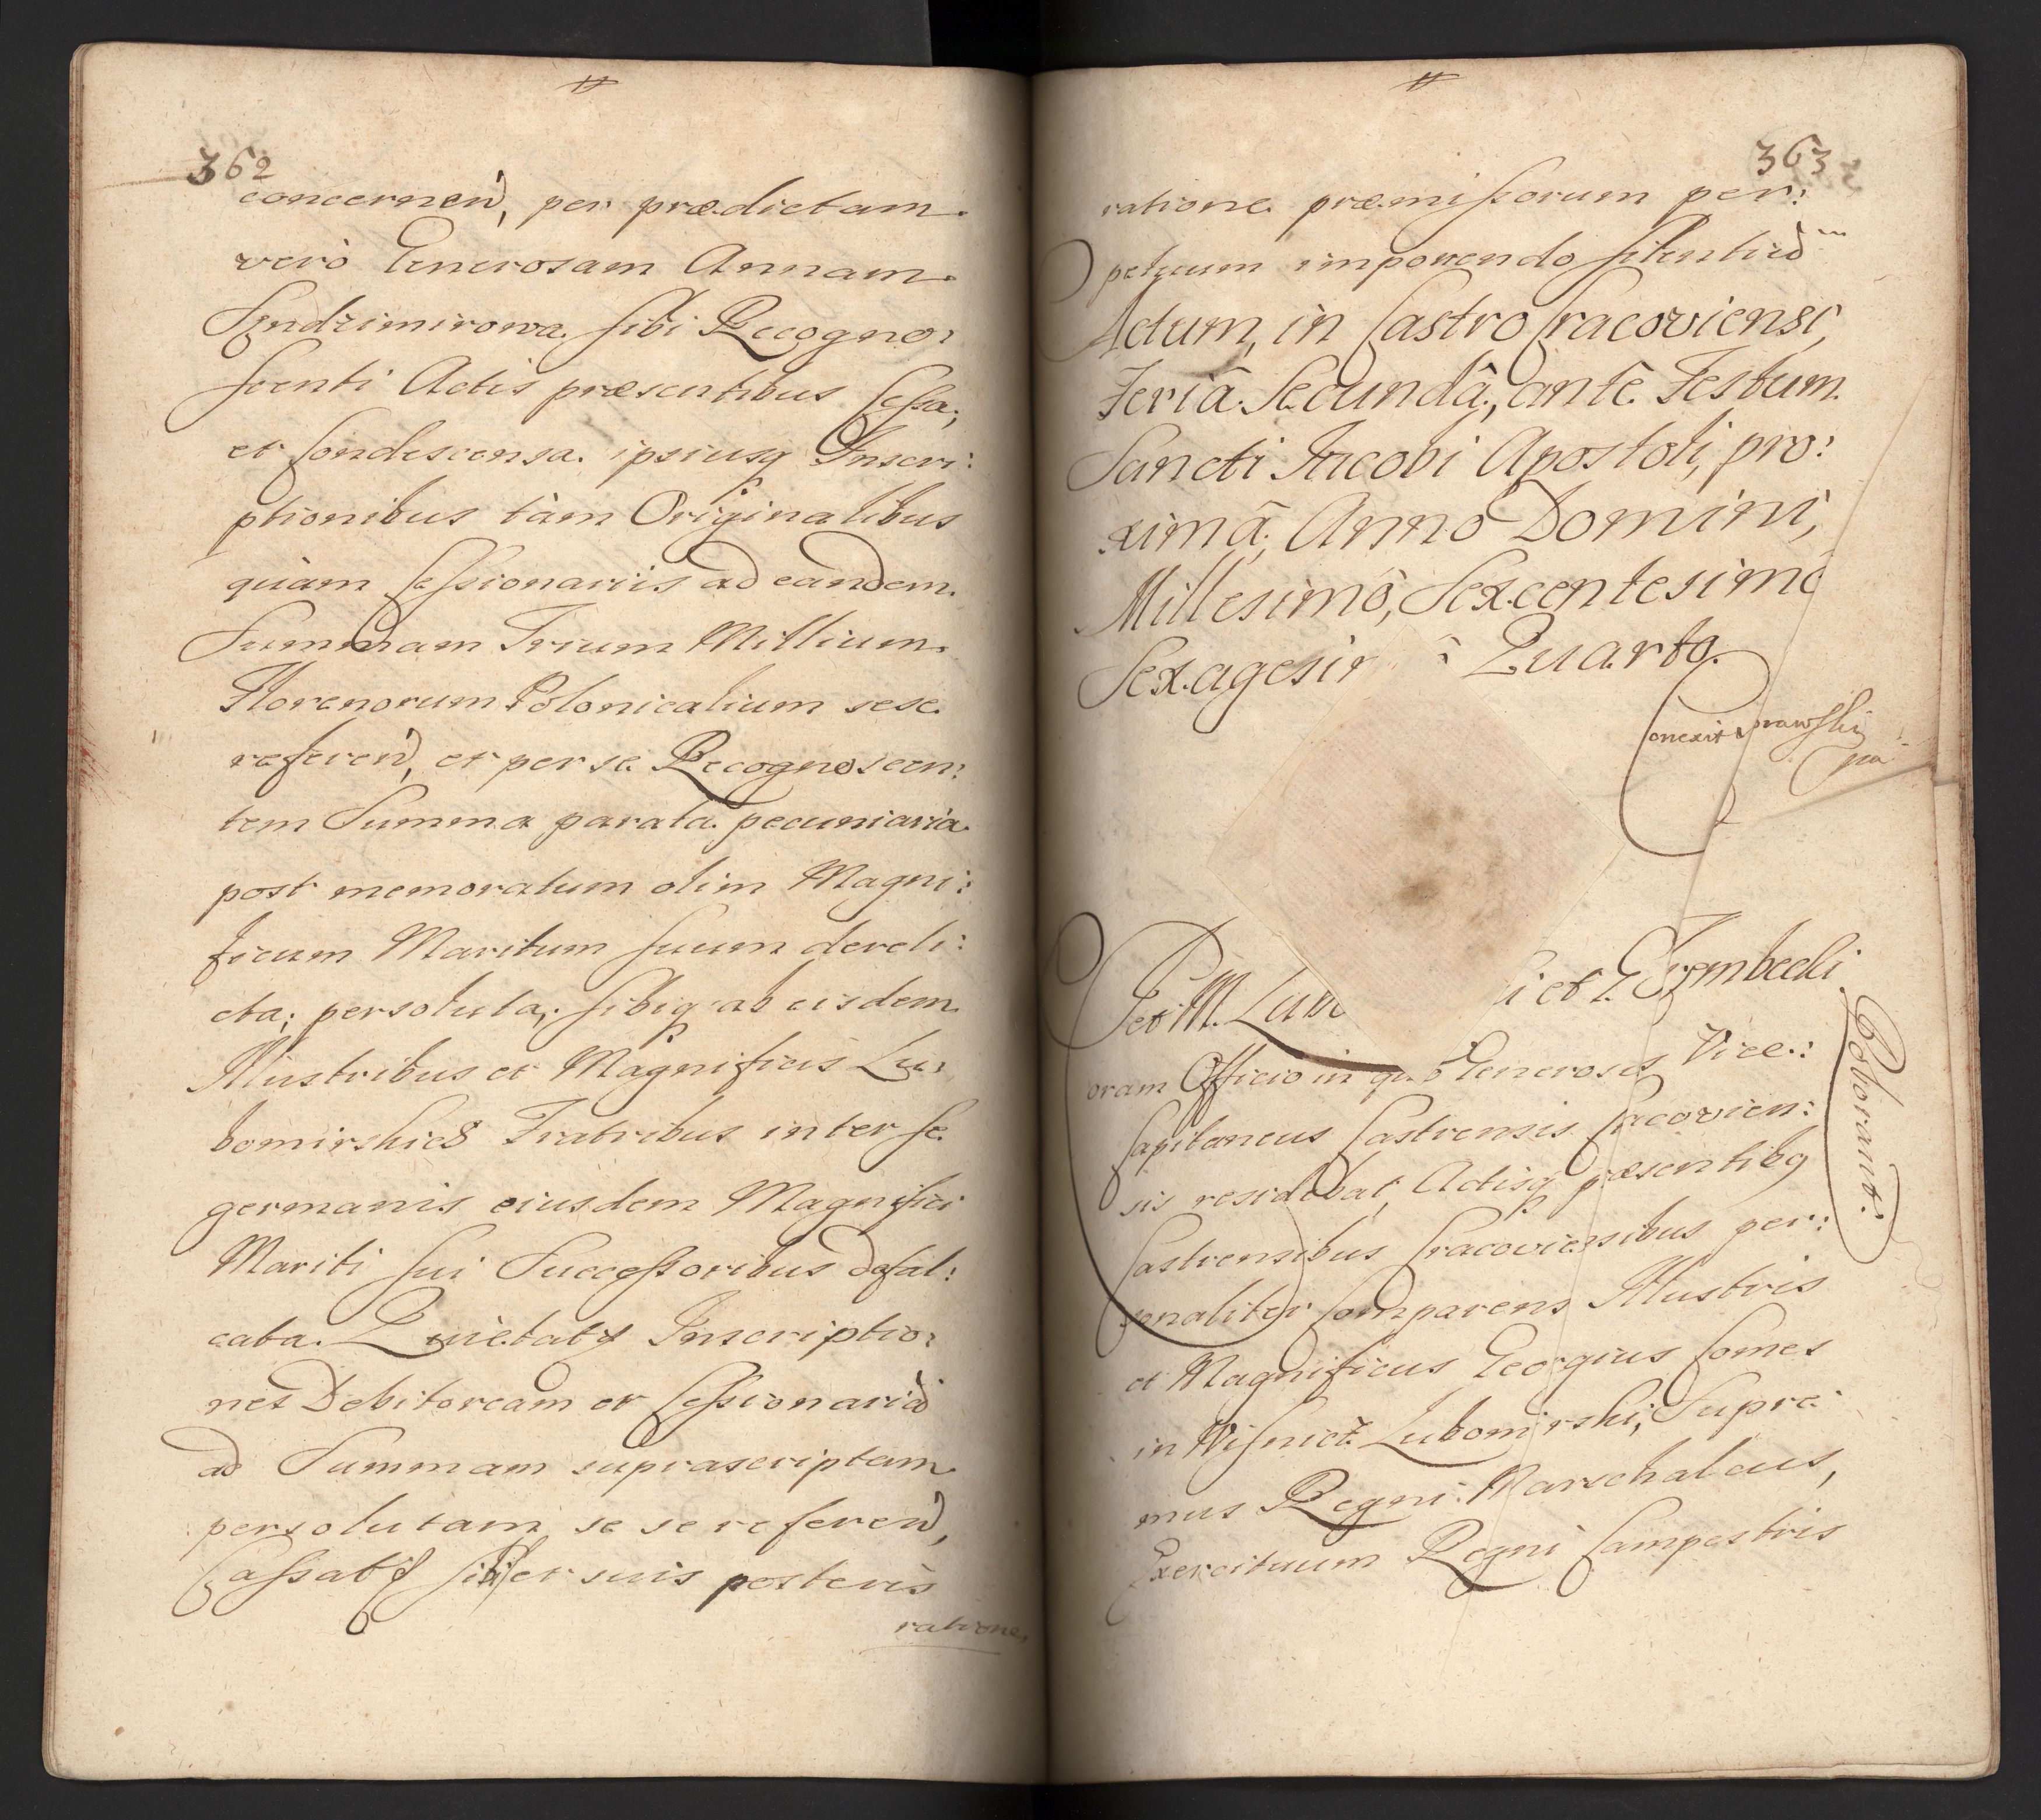 362
concernen̄, per prædictam
verò Generosam Annam
Sendzimirowa sibi Recogno:
scenti Actis præsentibus Cessa,
et Condescensa ipsiusq Inscri:
ptionibus tàm Originalibus
quàm Cessionariis ad eandem
Summam Trium Millium
Florenorum Polonicalium sese
referen̄, et per se Recognoscen:
tem Summa parata pecuniaria
post memoratum olim Magni:
ficum Maritum suum dereli:
cta, persoluta, sibiq ab eisdem
Illustribus et Magnificis Lu:
bomirskies Fratribus inter se
germanis eiusdem Magnifici
Mariti sui Successoribus defal:
cata. Quietat Inscriptio:
nes Debitoream et Cessionariā
ad Summam suprascriptam
persolutam se se referen̄,
Cassat sibi et suis posteris
ratione
363
ratione præmissorum per:
petuum imponendo silentiū
Actum, in Castro Cracoviensi,
Feriâ Secundâ, ante Festum
Sancti Jacobi Apostoli, pro:
ximâ, Anno Domini,
Millesimo, Sexcentesimo
Sexagesi Quarto.
Jer M. Lub i et G. Grembecki
Roborant:
oram Officio in quo Generosus Vice:
Capitaneus Castrensis Cracovien:
sis residebat, Actisq præsentibq
Castrensibus Cracoviensibus per:
sonaliter Comparens Illustris
et Magnificus Georgius Comes
in Wisnicz Lubomirski, Supre:
mus Regni Marschalcus,
Exercituum Regni Campestris